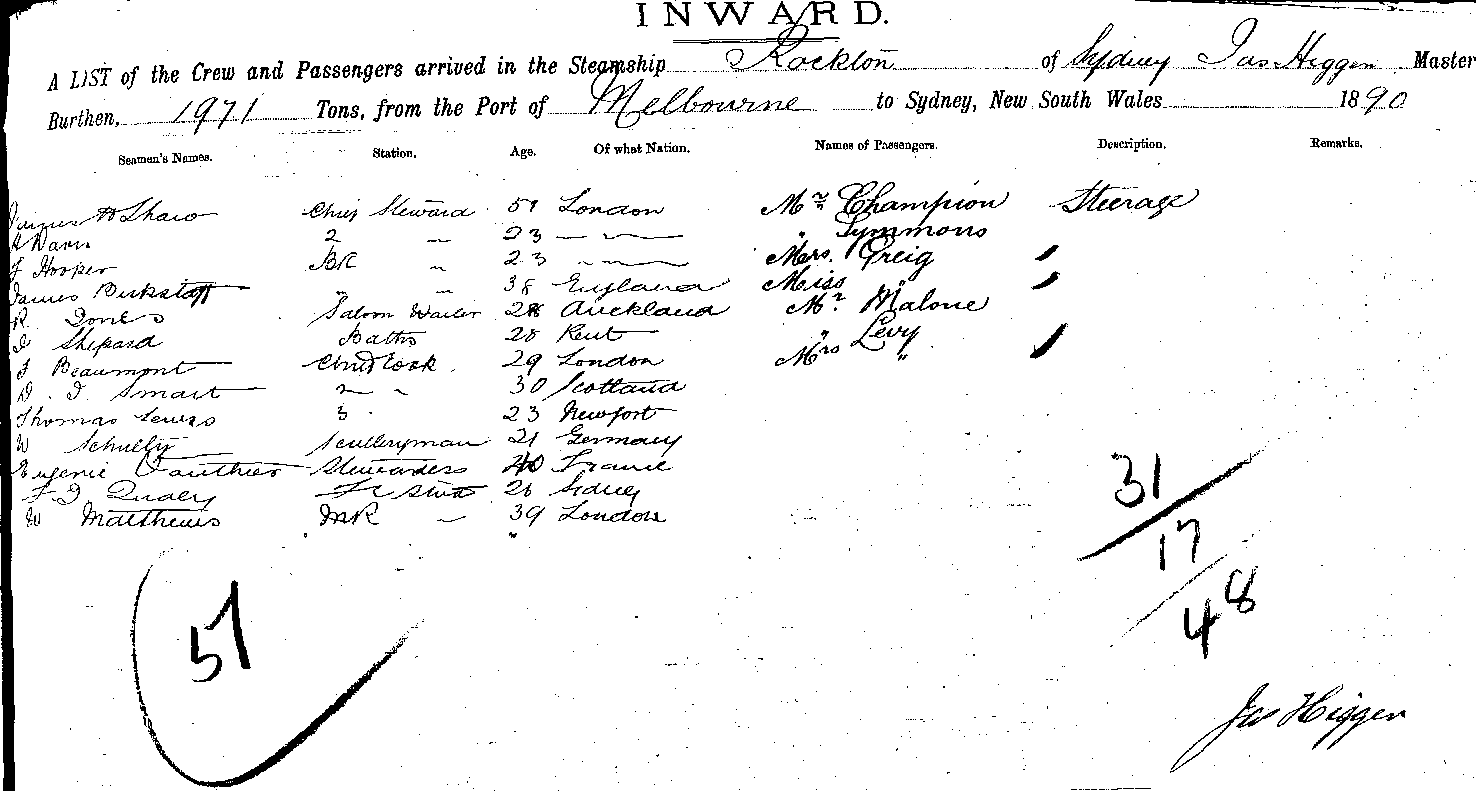 INWARD.
A LIST of the Crew and Passengers arrived in the Steamship Rockton of Sydney Jas Higgen Master
Burthen, 1971 Tons, from the Port of Melbourne to Sydney, New South Wales 1890
Seamen's Names. Station. Age. Of what Nation. Names of Passengers. Description. Remarks.
James W Shaw Chief Steward 51 London Mr Champion Steerage
2 " 23 " Symmons
F Hooper BR " 23 " Mrs. Greig "
James " " 38 England Miss " "
R. Jones Saloon Waiter 28 Auckland Mr Malone
Shepard Baths 28 Kent " Levy
J Beaumont Chief Cook 29 London Mrs " "
D. J Smart 2 " 30 Scotland
Thomas Lewis 3 " 23 Newport
W Schultz Sculleryman 21 Germany
Eugenie Gauthier Stewardess 40 France
F J Quaey 26 Sidney
W Matthews MR " 39 London
31
17
48
51
Jas Higgen